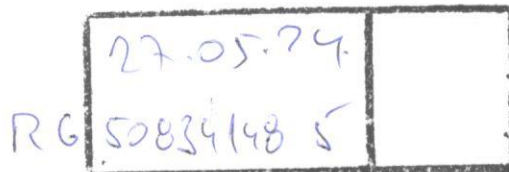 27.05.24.
RG 50834148 5